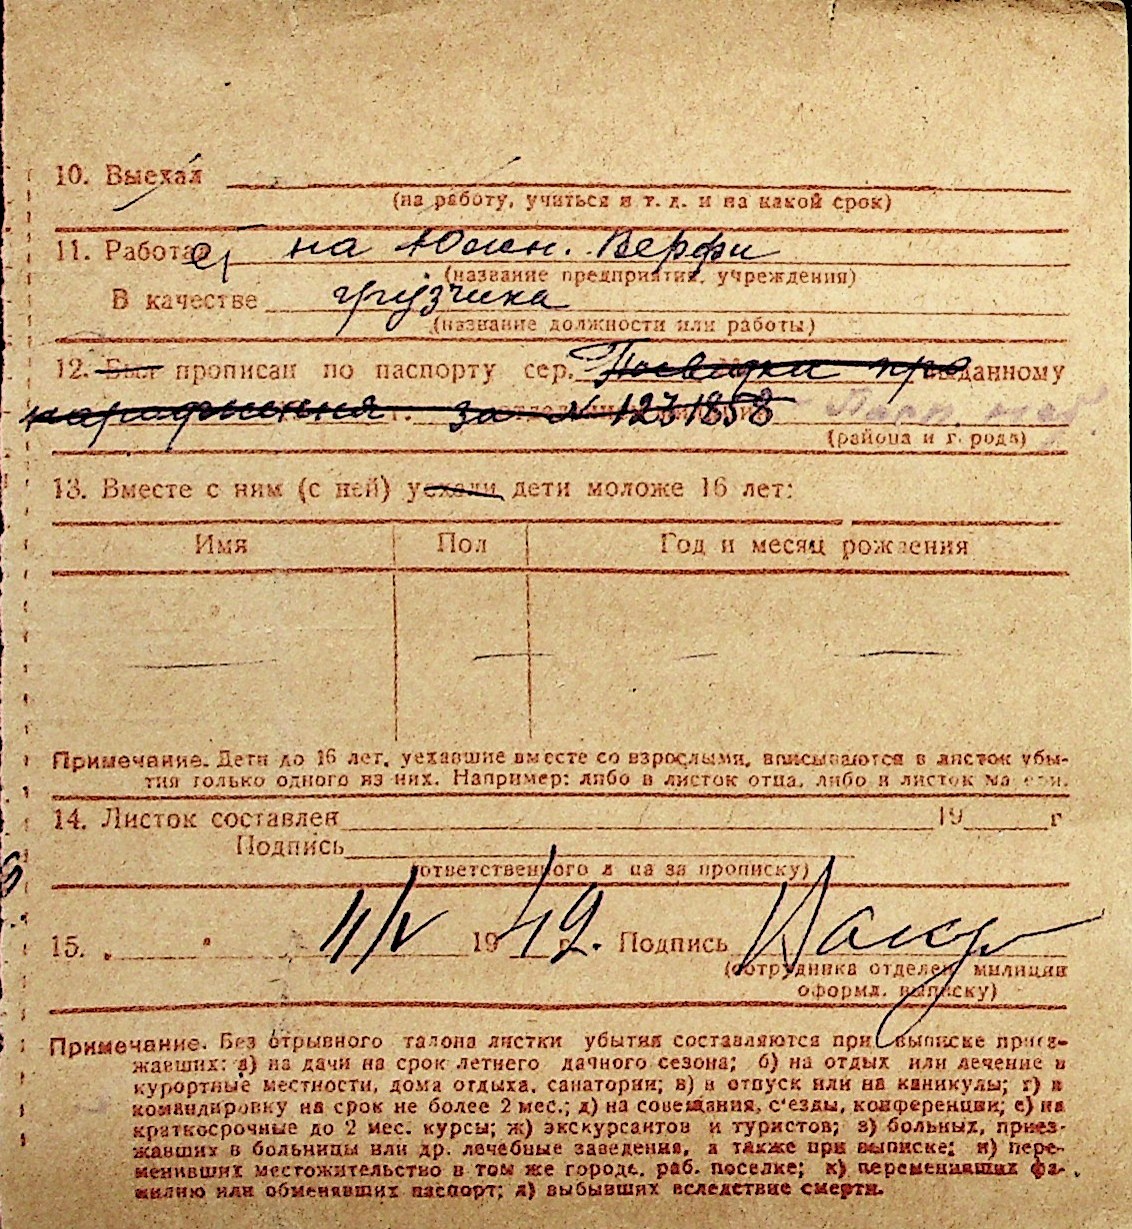 10. Выехал
(на работу, учиться и т. д. и на какой срок)
11. Работает на Южн. Верфи
(название предприятия, учреждения)
В качестве грузчика
(название должности или работы)
12. Был прописан по паспорту сер. Посведки про выданному
за № 1231858 Пасп.
(района и города)
13. Вместе с ним (с ней) уехали дети моложе 16 лет:
Имя Пол Год и месяц рождения
— — — —
Примечание. Дети до 16 лет, уехавшие вместе со взрослыми, вписываются в листок убы-
тия только одного из них. Например: либо в листок отца, либо в листок матери.
14. Листок составлен 19 г
Подпись
(ответственного лица за прописку)
15. 11/V 1949 г. Подпись
(сотрудника отделен. милиции
оформл. выписку)
Примечание. Без отрывного талона листки убытия составляются при выписке приез-
жавших: а) на дачи на срок летнего дачного сезона; б) на отдых или лечение в
курортные местности, дома отдыха, санатории; в) в отпуск или на каникулы; г) в
командировку на срок не более 2 мес.; д) на совещания, с'езды, конференции; е) на
краткосрочные до 2 мес. курсы; ж) экскурсантов и туристов; з) больных, приез-
жавших в больницы или др. лечебные заведения, а также при выписке; и) пере-
менивших местожительство в том же городе, раб. поселке; к) переменивших фа-
милию или обменявших паспорт; л) выбывших вследствие смерти.